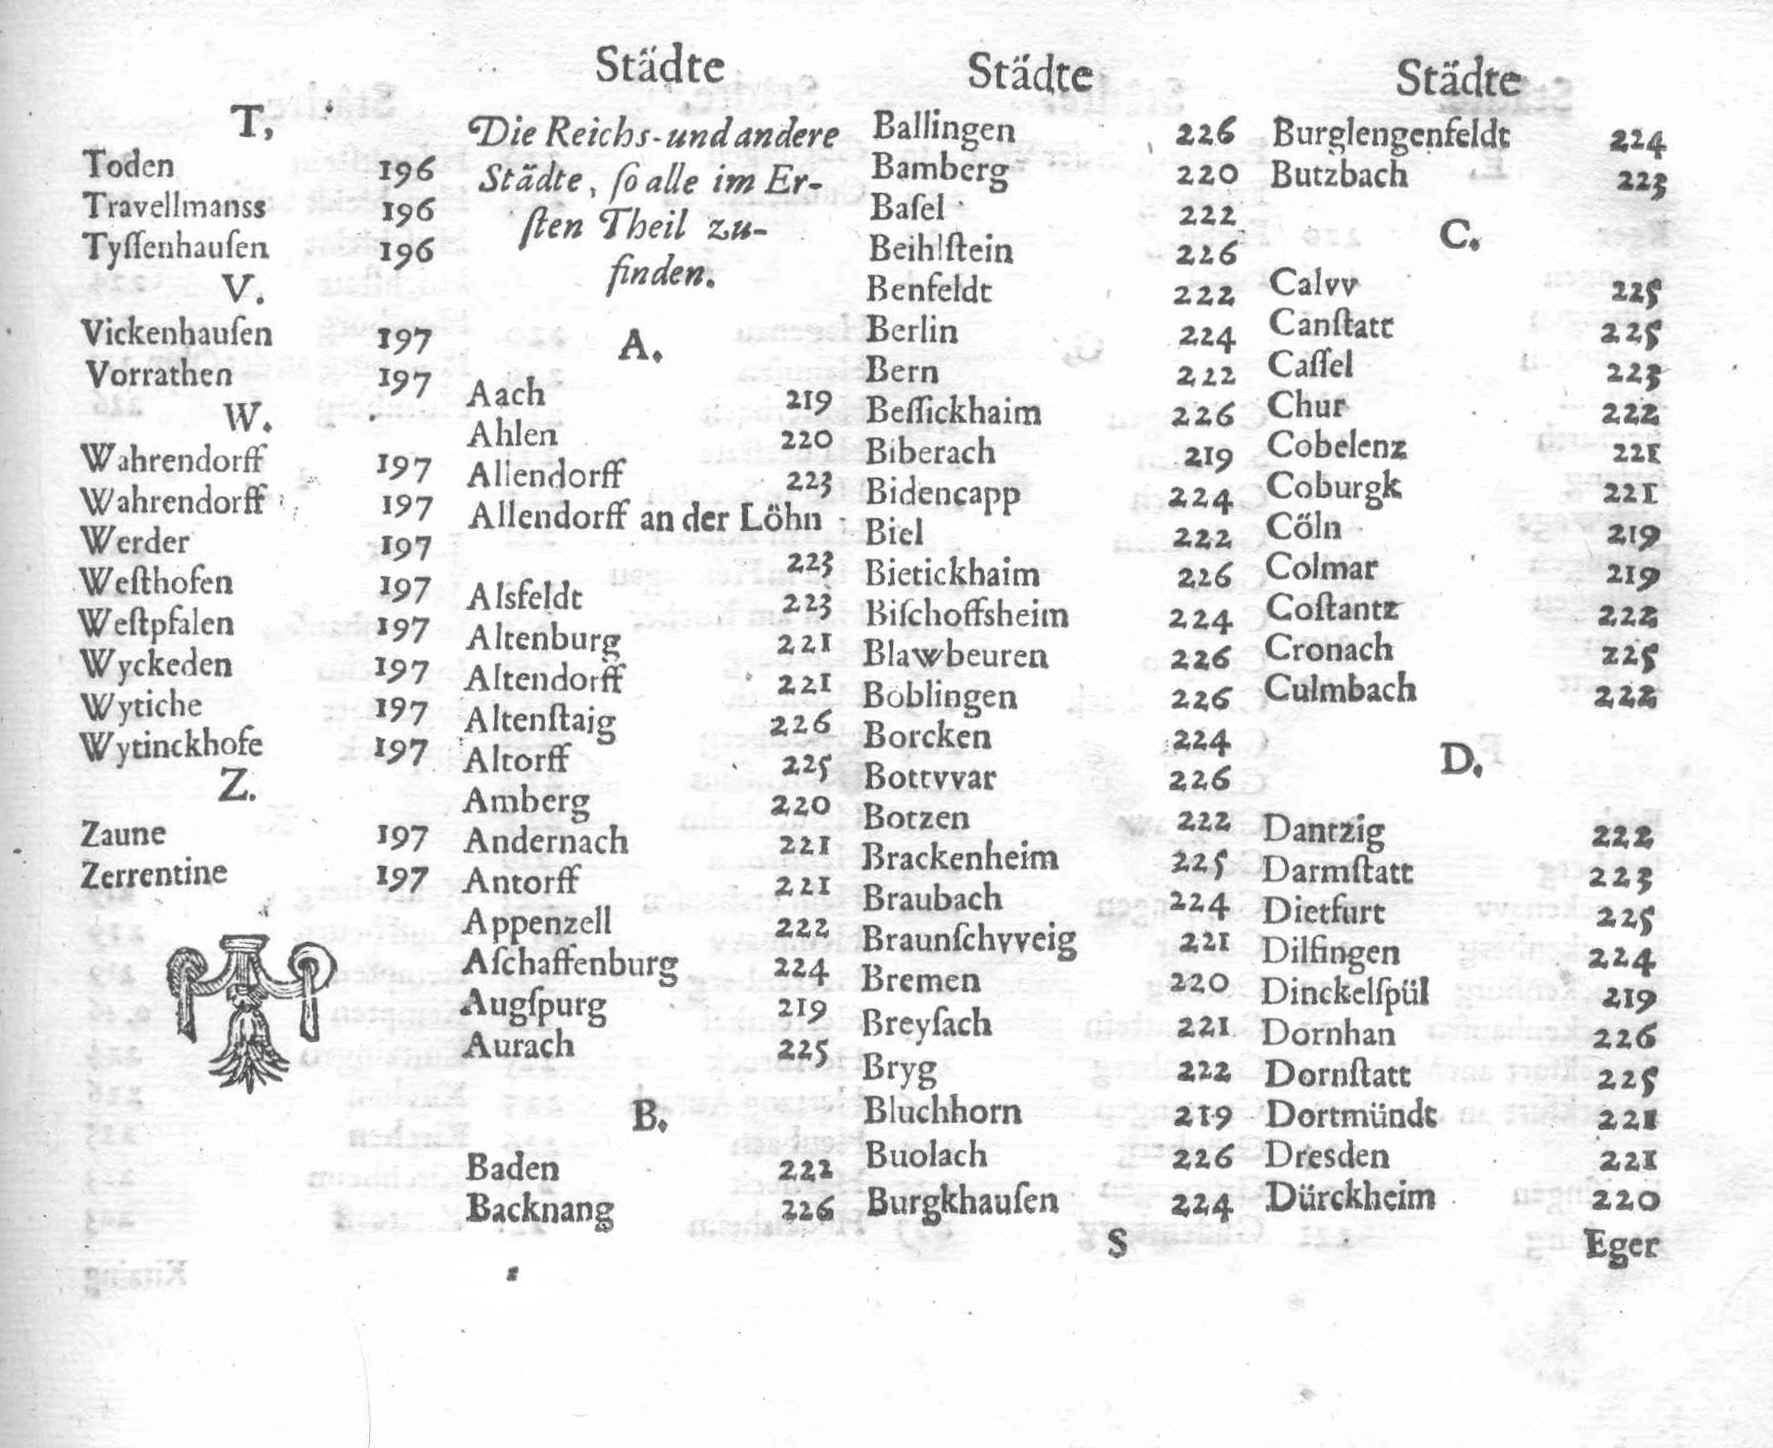 T,
Toden 196
Travellmanss 196
Tyſſenhauſen 196
V.
Vickenhauſen 197
Vorrathen 197
W.
Wahrendorff 197
Wahrendorff 197
Werder 197
Weſthofen 197
Weſtpfalen 197
Wyckeden 197
Wytiche 197
Wytinckhofe 197
Z.
Zaune 197
Zerrentine 197
Städte
Die Reichs-und andere
Städte, ſo alle im Er-
ſten Theil zu-
finden.
A.
Aach 219
Ahlen 220
Allendorff 223
Allendorff an der Löhn
223
Alsfeldt 223
Altenburg 221
Altendorff 221
Altenſtaig 226
Altorff 225
Amberg 220
Andernach 221
Antorff 221
Appenzell 222
Aſchaffenburg 224
Augſpurg 219
Aurach 225
B.
Baden 222
Backnang 226
Städte
Ballingen 226
Bamberg 220
Baſel 222
Beihlſtein 226
Benfeldt 222
Berlin 224
Bern 222
Beſſickhaim 226
Biberach 219
Bidencapp 224
Biel 222
Bietickhaim 226
Biſchoffsheim 224
Blawbeuren 226
Böblingen 226
Borcken 224
Bottvvar 226
Botzen 222
Brackenheim 225
Braubach 224
Braunſchvveig 221
Bremen 220
Breyſach 221
Bryg 222
Bluchhorn 219
Buolach 226
Burgkhauſen 224
S
Städte
Burglengenfeldt 224
Butzbach 223
C.
Calvv 225
Canſtatt 225
Caſſel 223
Chur 222
Cobelenz 221
Coburgk 221
Cöln 219
Colmar 219
Coſtantz 222
Cronach 225
Culmbach 222
D.
Dantzig 222
Darmſtatt 223
Dietfurt 225
Dilfingen 224
Dinckelſpül 219
Dornhan 226
Dornſtatt 225
Dortmündt 221
Dresden 221
Dürckheim 220
Eger